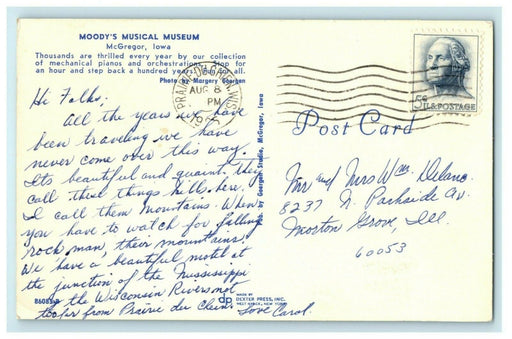 MOODY'S MUSICAL MUSEUM
McGregor, Iowa
Thousands are thrilled every year by our collection
of mechanical pianos and orchestrations. Stop for
an hour and step back a hundred years. Fun for all.
Photo by Margery Goergen
Hi Folks;
All the years we have
been traveling we have
never come over this way.
Its beautiful and quaint, they
call these things hills here,
I call them mountains. When
you have to watch for falling
rock, man, theirs mountains.
We have a beautiful motel at
the junction of the Mississippi
& the Wisconsin Rivers not
too far from Prairie du Chein. Love Carol.
Pub. by Goergen Studio, McGregor, Iowa
DP
MADE BY
DEXTER PRESS, INC.
WEST NYACK, NEW YORK
PRAIRIE DU CHIEN, WIS.
AUG 8
PM
5¢ U.S. POSTAGE
Post Card
Mr and Mrs Wm.
8237 N. Parkside Av.
Morton Grove, Ill.
60053